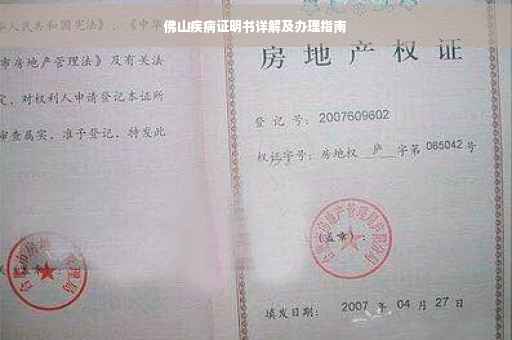 佛山疾病证明书详解及办理指南
华人民共和国宪法》、《中华
市房地产管理法》及有关法
定，对权利人申请登记本证所
审查属实，准予登记，特发此
房地产权证
登记号：2007609602
权证字号：房地权 庐 字第 065042 号
(盖章)：
填发日期： 2007 年 04 月 27 日